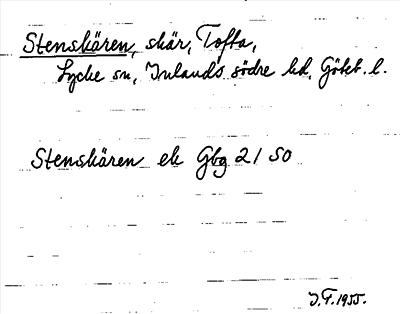 Stenskären, skär, Tofta,
Lycke sn, Inlands södre hd, Göteb. l.
Stenskären ek Gbg 21 SO
J.F. 1955.